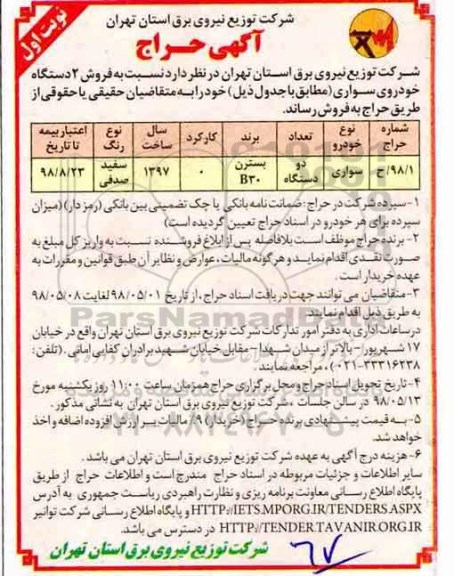 نوبت اول
شرکت توزیع نیروی برق استان تهران
آگهی حراج
شرکت توزیع نیروی برق استان تهران در نظر دارد نسبت به فروش ۲ دستگاه
خودروی سواری (مطابق با جدول ذیل) خود را به متقاضیان حقیقی یا حقوقی از
طریق حراج به فروش رساند.
شماره حراج نوع خودرو تعداد برند کارکرد سال ساخت نوع رنگ اعتبار بیمه تا تاریخ
۹۸/۱/ح سواری دو دستگاه بسترن B۳۰ ۰ ۱۳۹۷ سفید صدفی ۹۸/۸/۲۳
۱- سپرده شرکت در حراج: ضمانت نامه بانکی یا چک تضمینی بین بانکی (رمز دار) (میزان
سپرده برای هر خودرو در اسناد حراج تعیین گردیده است)
۲- برنده حراج موظف است بلافاصله پس از ابلاغ فروشنده نسبت به واریز کل مبلغ به
صورت نقدی اقدام نماید و هرگونه مالیات، عوارض و نظایر آن طبق قوانین و مقررات به
عهده خریدار است.
۳- متقاضیان می توانند جهت دریافت اسناد حراج، از تاریخ ۹۸/۰۵/۰۱ لغایت ۹۸/۰۵/۰۸
به طریق ذیل اقدام نمایند.
در ساعات اداری به دفتر امور تدارکات شرکت توزیع نیروی برق استان تهران واقع در خیابان
۱۷ شهریور- بالاتر از میدان شهدا - مقابل خیابان شهید برادران کفایی امانی. (تلفن:
۳۳۳۱۶۲۳۸-۰۲۱)، مراجعه نمایند.
۴- تاریخ تحویل اسناد حراج و محل برگزاری حراج همزمان ساعت ۱۱:۰۰ روز یکشنبه مورخ
۹۸/۰۵/۱۳ در سالن جلسات، شرکت توزیع نیروی برق استان تهران به نشانی مذکور.
۵- به قیمت پیشنهادی برنده حراج (خریدار) ۹٪ مالیات بر ارزش افزوده اضافه و اخذ
خواهد شد.
۶- هزینه درج آگهی به عهده شرکت توزیع نیروی برق استان تهران می باشد.
سایر اطلاعات و جزئیات مربوطه در اسناد حراج مندرج است و اطلاعات حراج از طریق
پایگاه اطلاع رسانی معاونت برنامه ریزی و نظارت راهبردی ریاست جمهوری به آدرس
HTTP://IETS.MPORG.IR/TENDERS.ASPX و پایگاه اطلاع رسانی شرکت توانیر
HTTP://TENDER.TAVANIR.ORG.IR در دسترس می باشد.
شرکت توزیع نیروی برق استان تهران
۶۷
ParsNamadData
۰۲۱-۸۸۳۴۹۶۷۰-۵